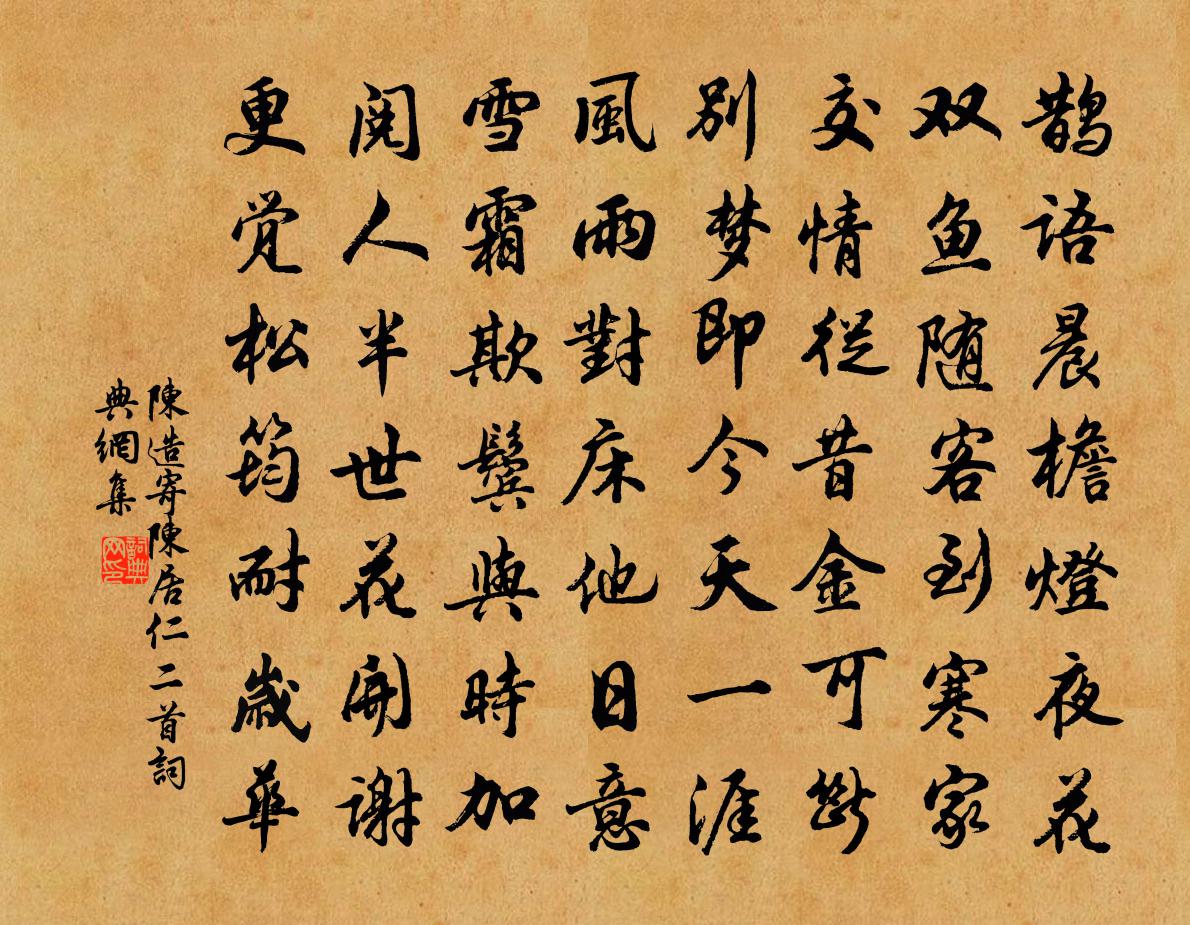 鹊语晨檐燈夜花
双鱼随客到寒家
交情従昔金可断
别梦即今天一涯
風雨對床他日意
雪霜欺鬓與時加
阅人半世花開谢
更觉松筠耐歲華
陳造寄陳居仁二首詞
典網集
詞典
网印